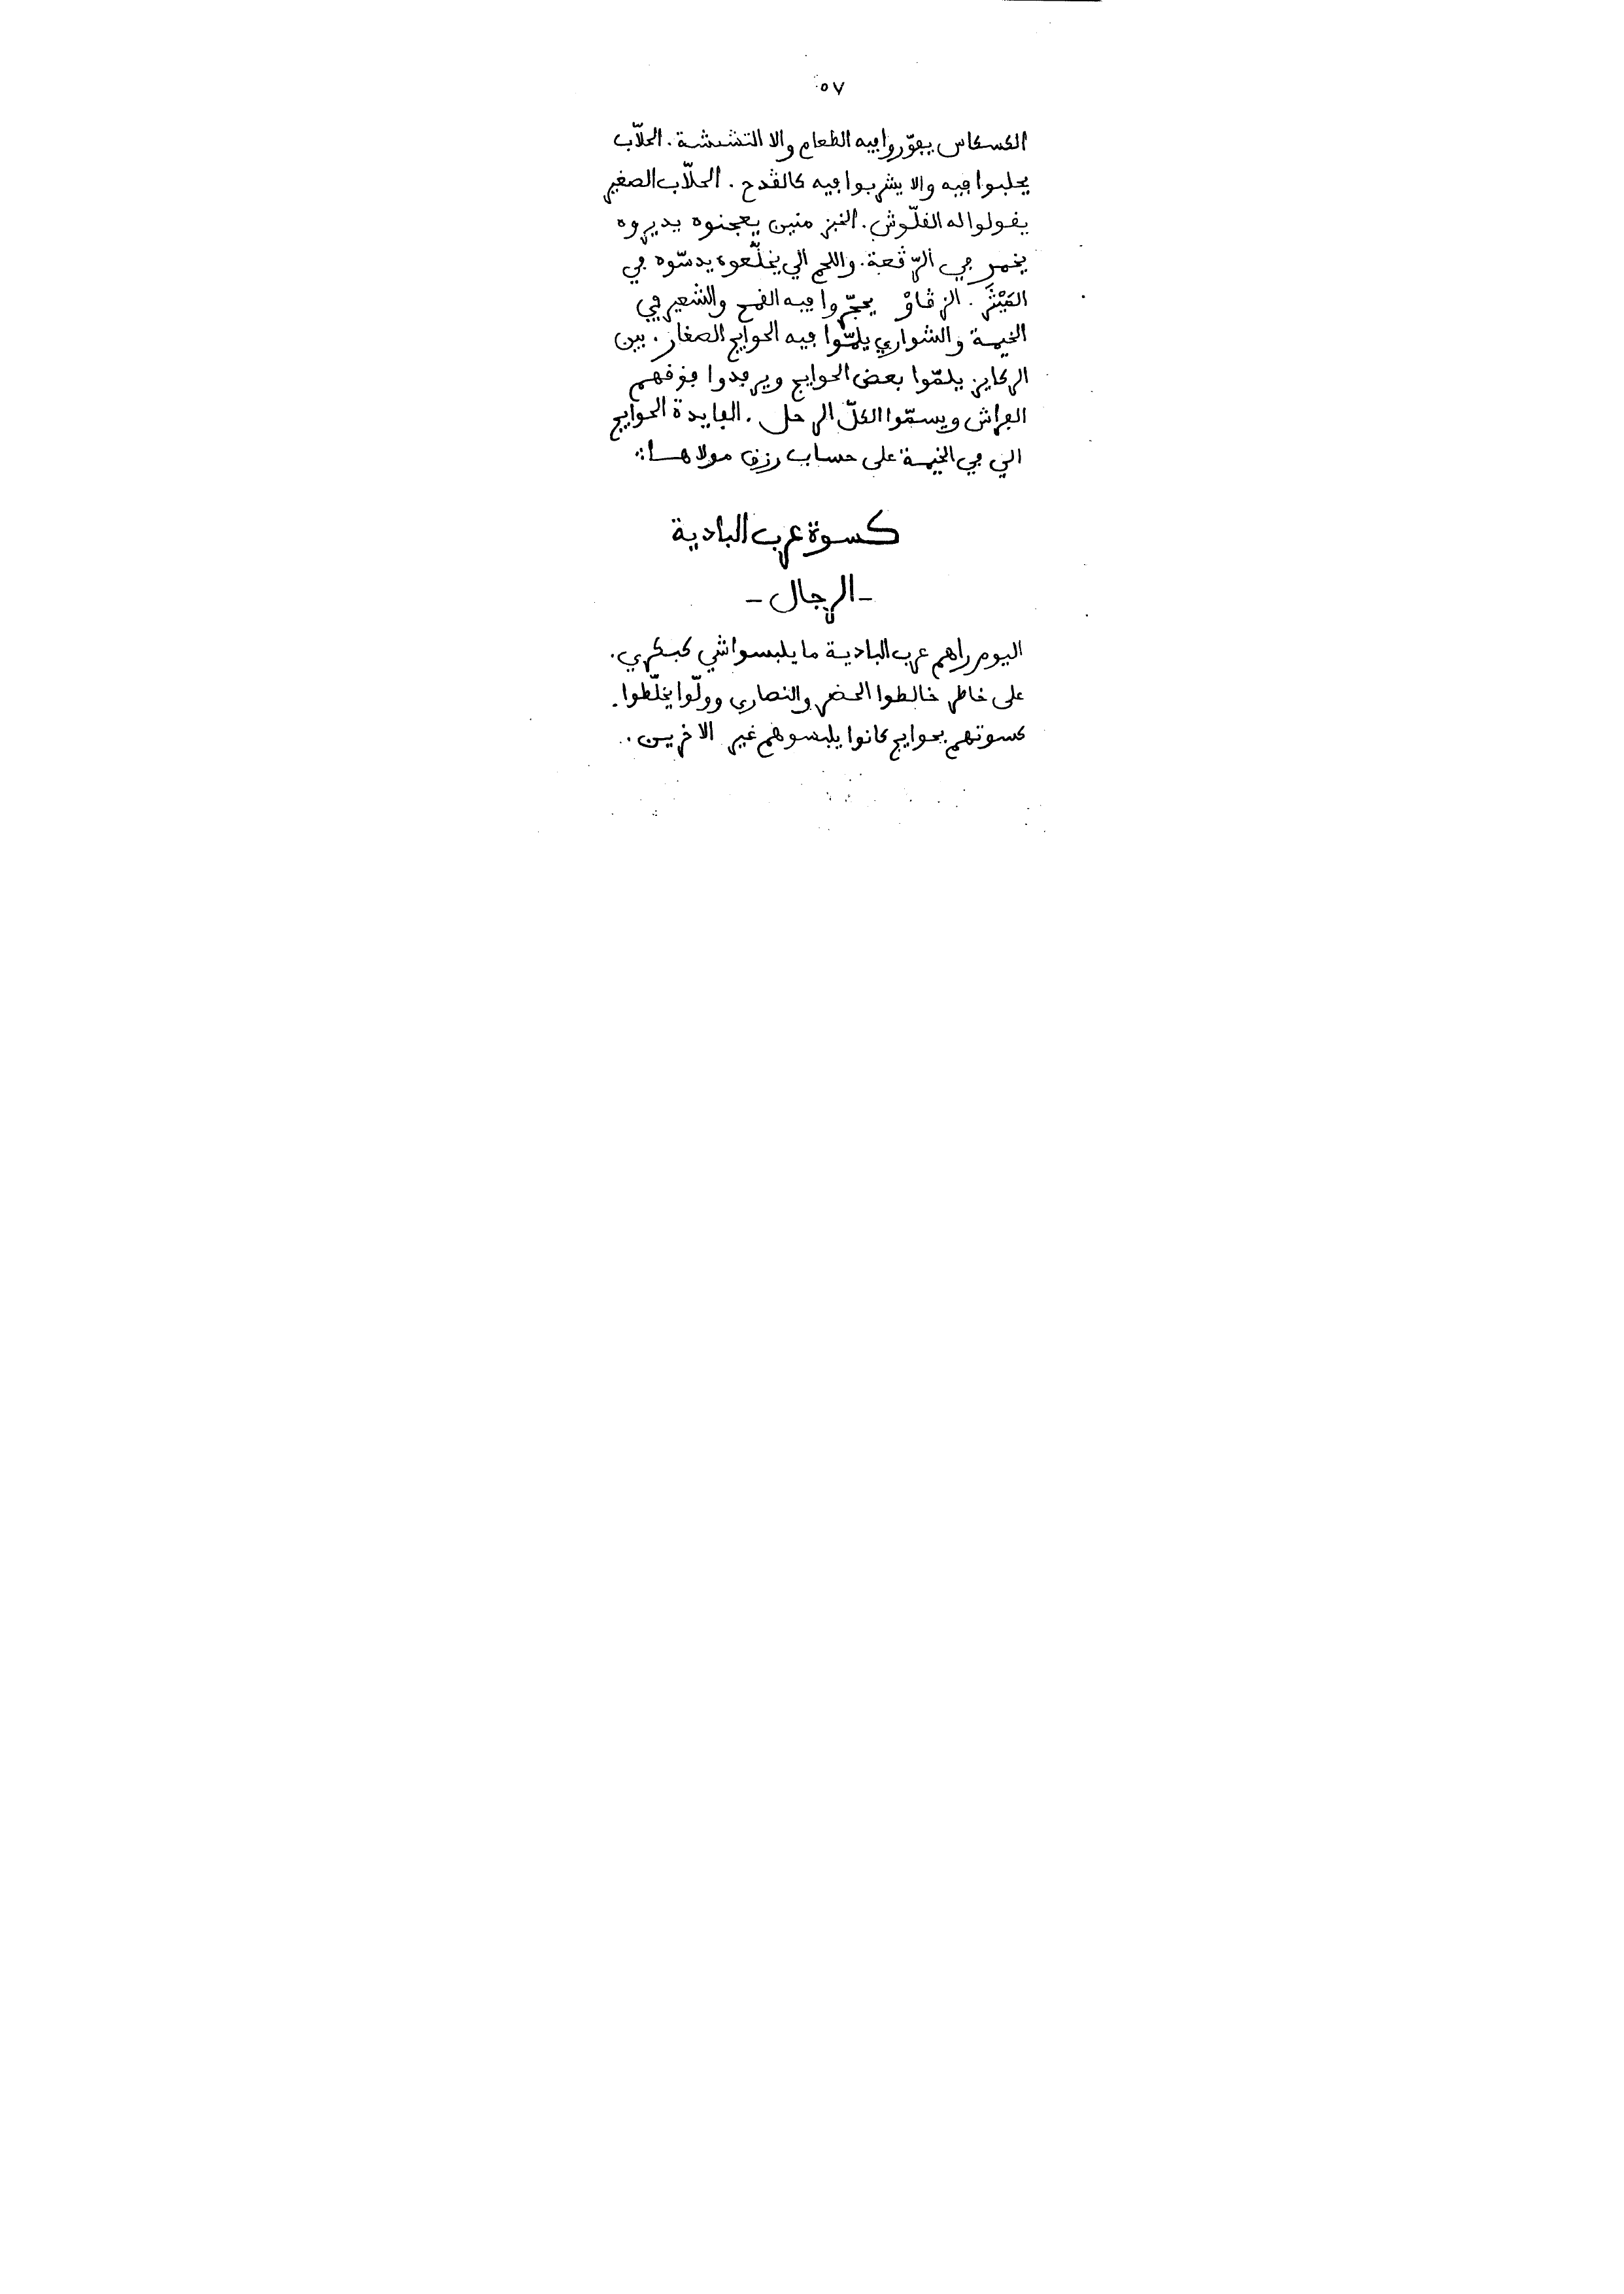 ٥٧
الكسكاس يڢوّروا ڢيه الطعام والا التشيشة. الحلّاب
يحلبوا ڢيه والا يشربوا ڢيه كالڤدح. الحلّاب الصغير
يڧولوا له الڧلّوش. الخبز منين يعجنوه يديروه
يخمر ڢي الرّڤعة. واللحم الي يخلّعوه يدسّوه ڢي
الزڤاوْ يحجّروا ڢيه الڧمح والشعير ڢي
الخيمة والشواري يلمّوا ڢيه الحوايج الصغار. بين
الركايز يلمّوا بعض الحوايج ويرڢدوا ڢوڧهم
الڢراش ويسمّوا الكلّ الرحل. الڢايدة الحوايج
الي ڢي الخيمة على حساب رزڧ مولاها:
كسوة عرب البادية
- الرجال -
اليوم راهم عرب البادية ما يلبسوا شي كبكري.
على خاطر خالطوا الحضر والنصارى وولّوا يخلّطوا
كسوتهم بحوايج كانوا يلبسوهم غير الاخرين.